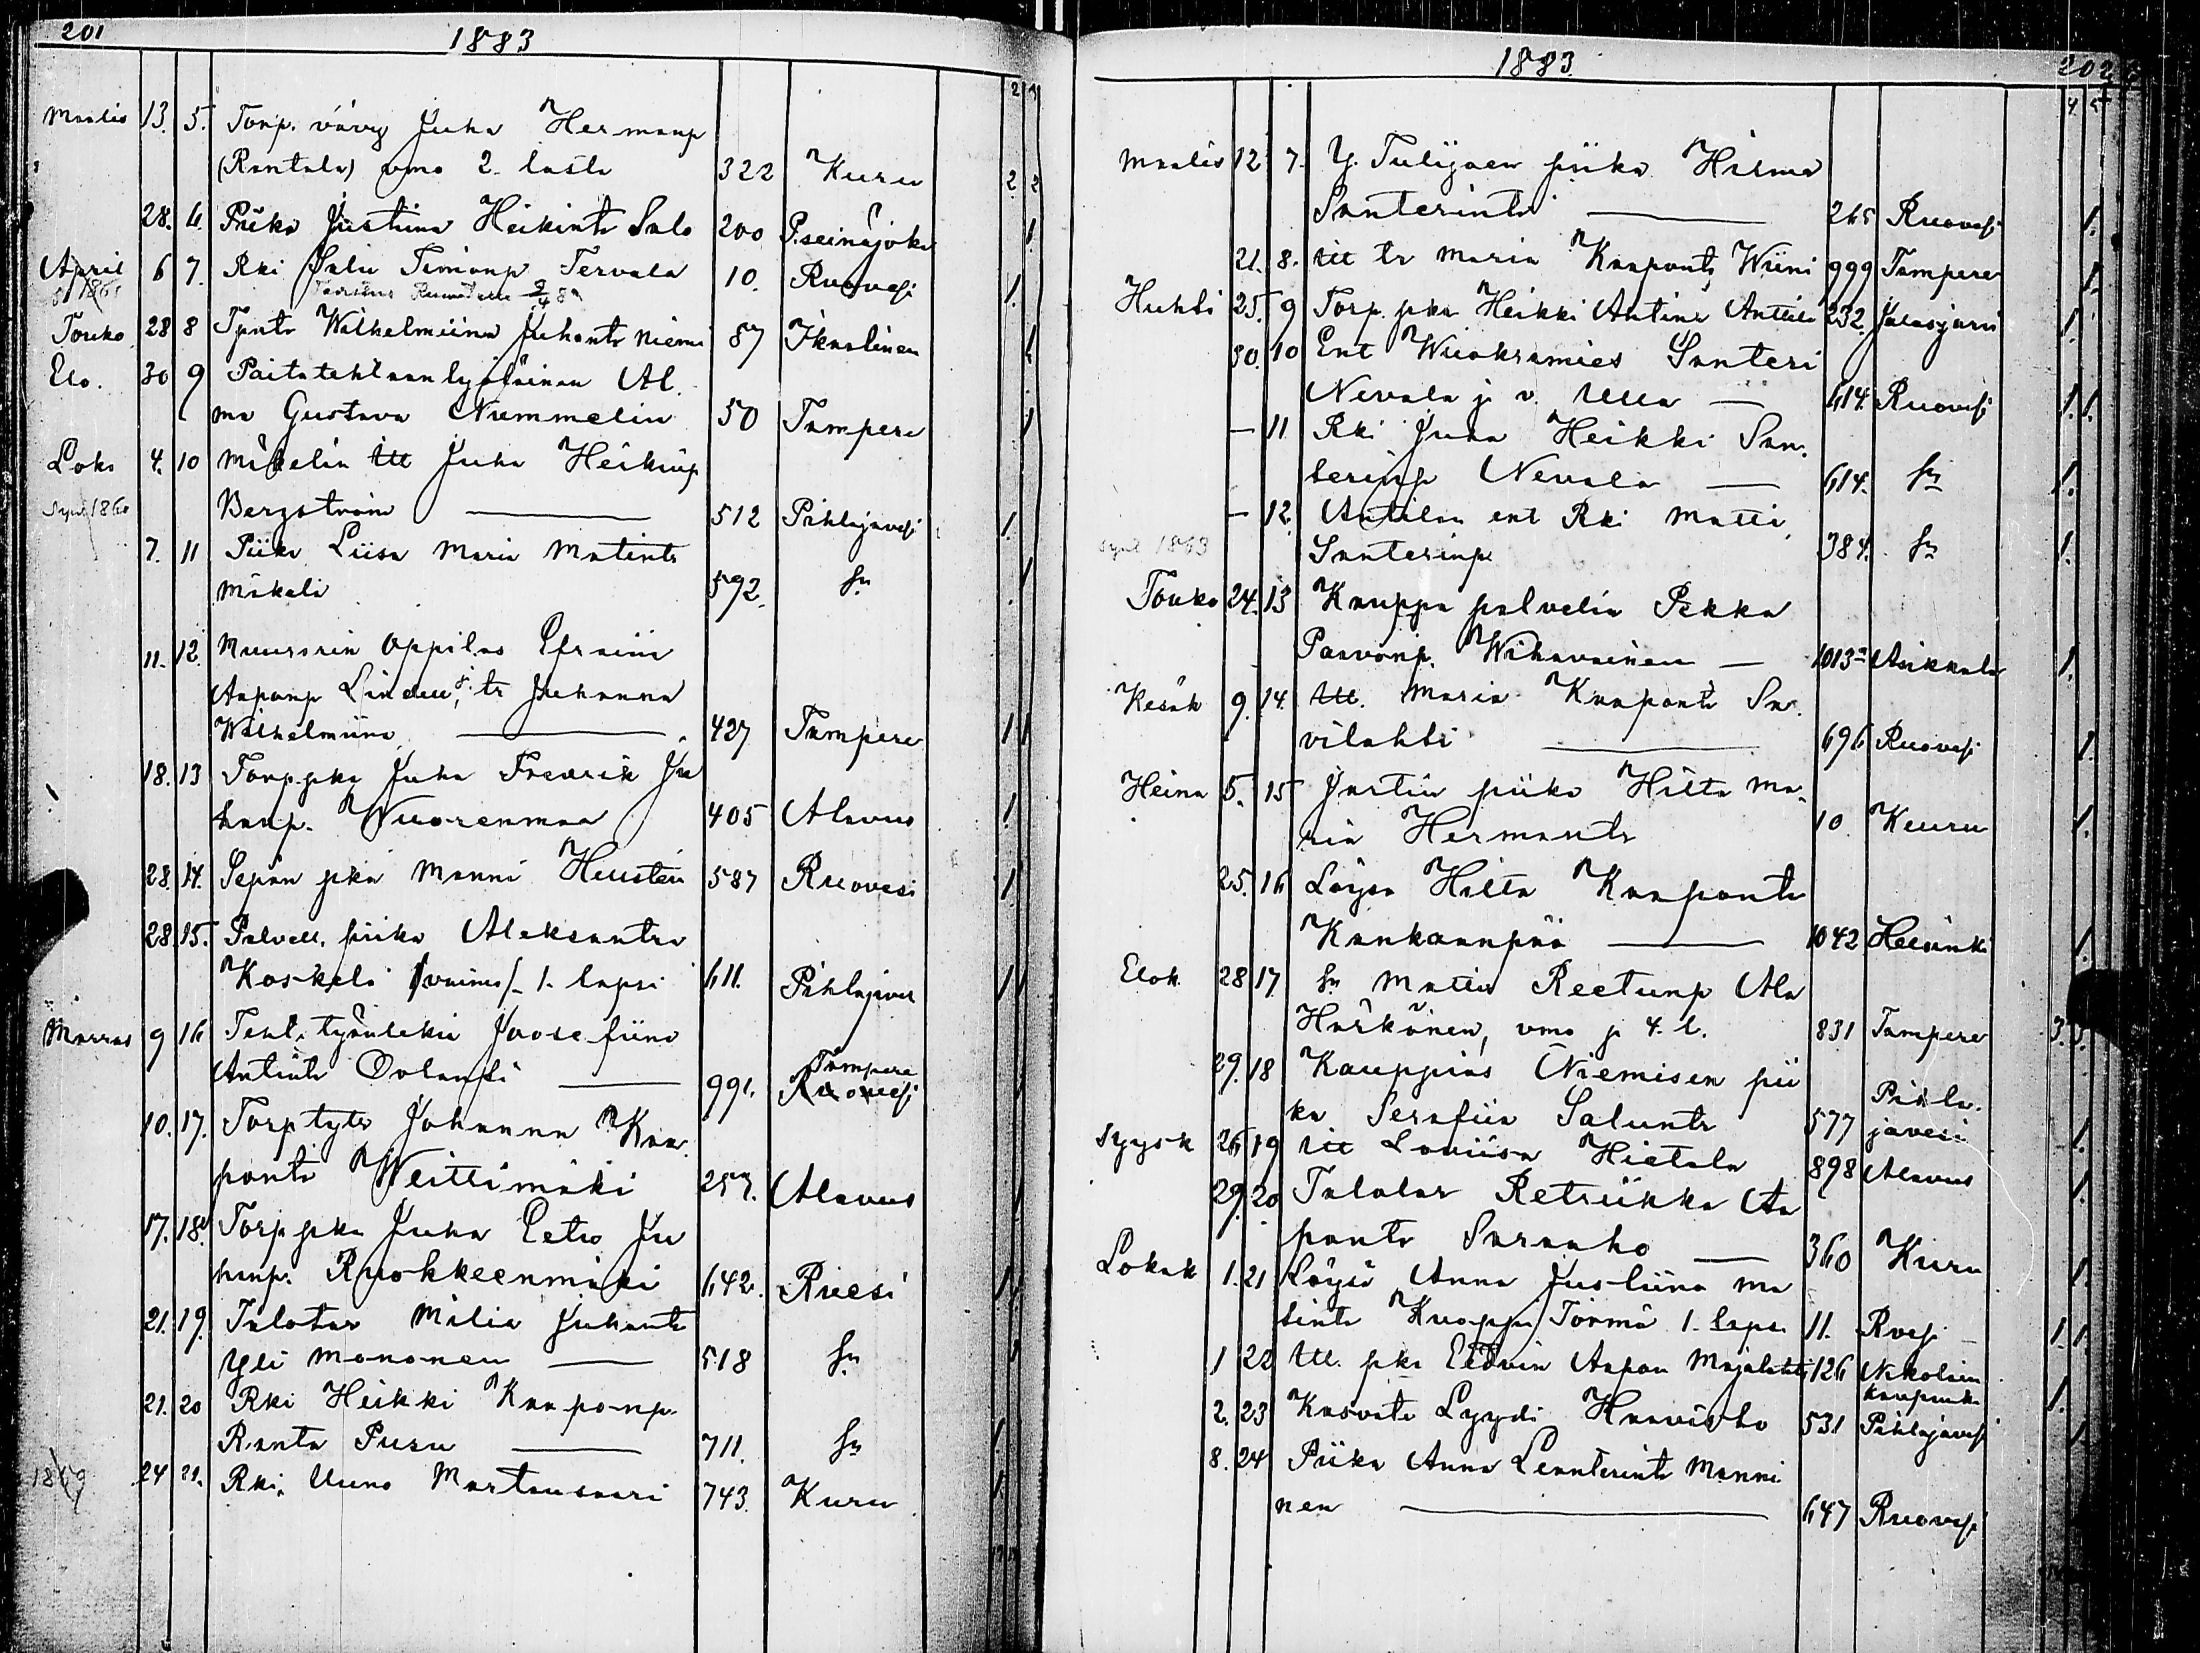 201
1883
2 3
Maalis 13. 5. Torp. vävy Juha Hermanp
(Rantala) vmo 2. lasta 322 Kuru 2 2
28. 6. Piika Justiina Heikintr Salo 200 P.seinäjoki 1.
April 6 7. Rki Salu Simonp Tervala 10. Ruovesi 1.
Touko 28 8 Tpntr Wilhelmiina Juhantr Niemi 87 Ikaalinen 1.
Elo. 30 9 Paitatehtaantyöläinen Al.
ma Gustava Nummelin 50 Tampere 1
Loka 4. 10 Mäkelin itt Juha Heikinp
Synt 1860 Bergström 512 Pihlajavesi 1.
7. 11 Piika Liisa Maria Matintr
Mäkeli 592. sn 1
11. 12. Muurarin oppilas Efraim
Aaponp Linden, j. tr Juhanna
Wilhelmiina 427 Tampere 1 1
18. 13 Torp.pka Juha Fredrik Ju
hanp. Wuorenmaa 405 Alavus 1.
28. 14. Sepän pka Manni Heusten 587 Ruovesi 1
28. 15. Palvell. piika Aleksantra
Koskela /vaimo/ 1. lapsi 611. Pihlajaves 1 1
Marras 9 16 Teht. työntekiä Joosefiina
Antintr Orlansi 991. Tampere Ruovesi 1
10. 17. Torp tytr Johanna Kaa
pontr Weittimäki 257. Alavus 1
17. 18. Torp pka Juha Eetro Ju
hanp. Ruokkeenmäki 642. Rvesi 1
21. 19. Talotar Milia Juhantr
Yli Mononen 518 sn 1
21. 20 Rki Heikki Kaaponp
Ranta Pusu 711. sn 1.
1869 24 21. Rki. Uuno Martansaari 743. Kuru 1.
1883
202
4. 5
Maalis 12 7. Y. Tulijaen piika Hilma
Santerintr 265 Ruovesi 1.
21. 8. itt tr Maria Kaapontr Wiini 999 Tampere 1.
Huhti 25. 9 Torp. pka Heikki Antinp Anttila 232. Jalasjärvi 1.
30. 10 Ent Wuokramies Santeri
Nevala j. v. Ulla 614. Ruovesi 1. 1.
11 Rki Juha Heikki San.
terinp Nevala 614. sn 1.
12. Anttilan ent Rki Matti
synt 1863 Santerinp 384. sn 1.
Touko 24. 13 Kauppa palvelia Pekka
Paavonp. Wihavainen 1013 Asikkala 1.
Kesäk 9. 14. itt. Maria Kaapontr Sa.
vilahti 696 Ruovesi 1.
Heinä 5. 15 Justin piika Hilta Ma.
ria Hermantr 10 Keuru 1.
25. 16 Löysä Hilta Kaapontr
Kankaanpää 1042 Helsinki 1.
Elok 28 17. sn Matti Reetunp Ala
Härkönen, vmo j. 4. l. 831 Tampere 3. 3.
29. 18 Kauppias Niemisen pii
ka Serafiia Saluntr 577 Pihla. javesi 1.
Syysk 26 19 itt Loviisa Hietala 898 Alavus
29. 20 Talolar Retriikka Aa
pontr Saraaho 360 Kuru 1.
Lokak 1. 21 Löysä Anna Justiina Ma
tintr Kuoppa/Törmä 1. lapsi 11. Rvesi 1. 1.
1 22 itt. pka Eedvin Aapon Majalahti 126 Nikolain kaupunki 1.
2. 23 Kasvatti Lyydi Haavisto 531 Pihlajavesi 1.
8. 24 Piika Anna Leanterintr Manni
nen 647 Ruovesi